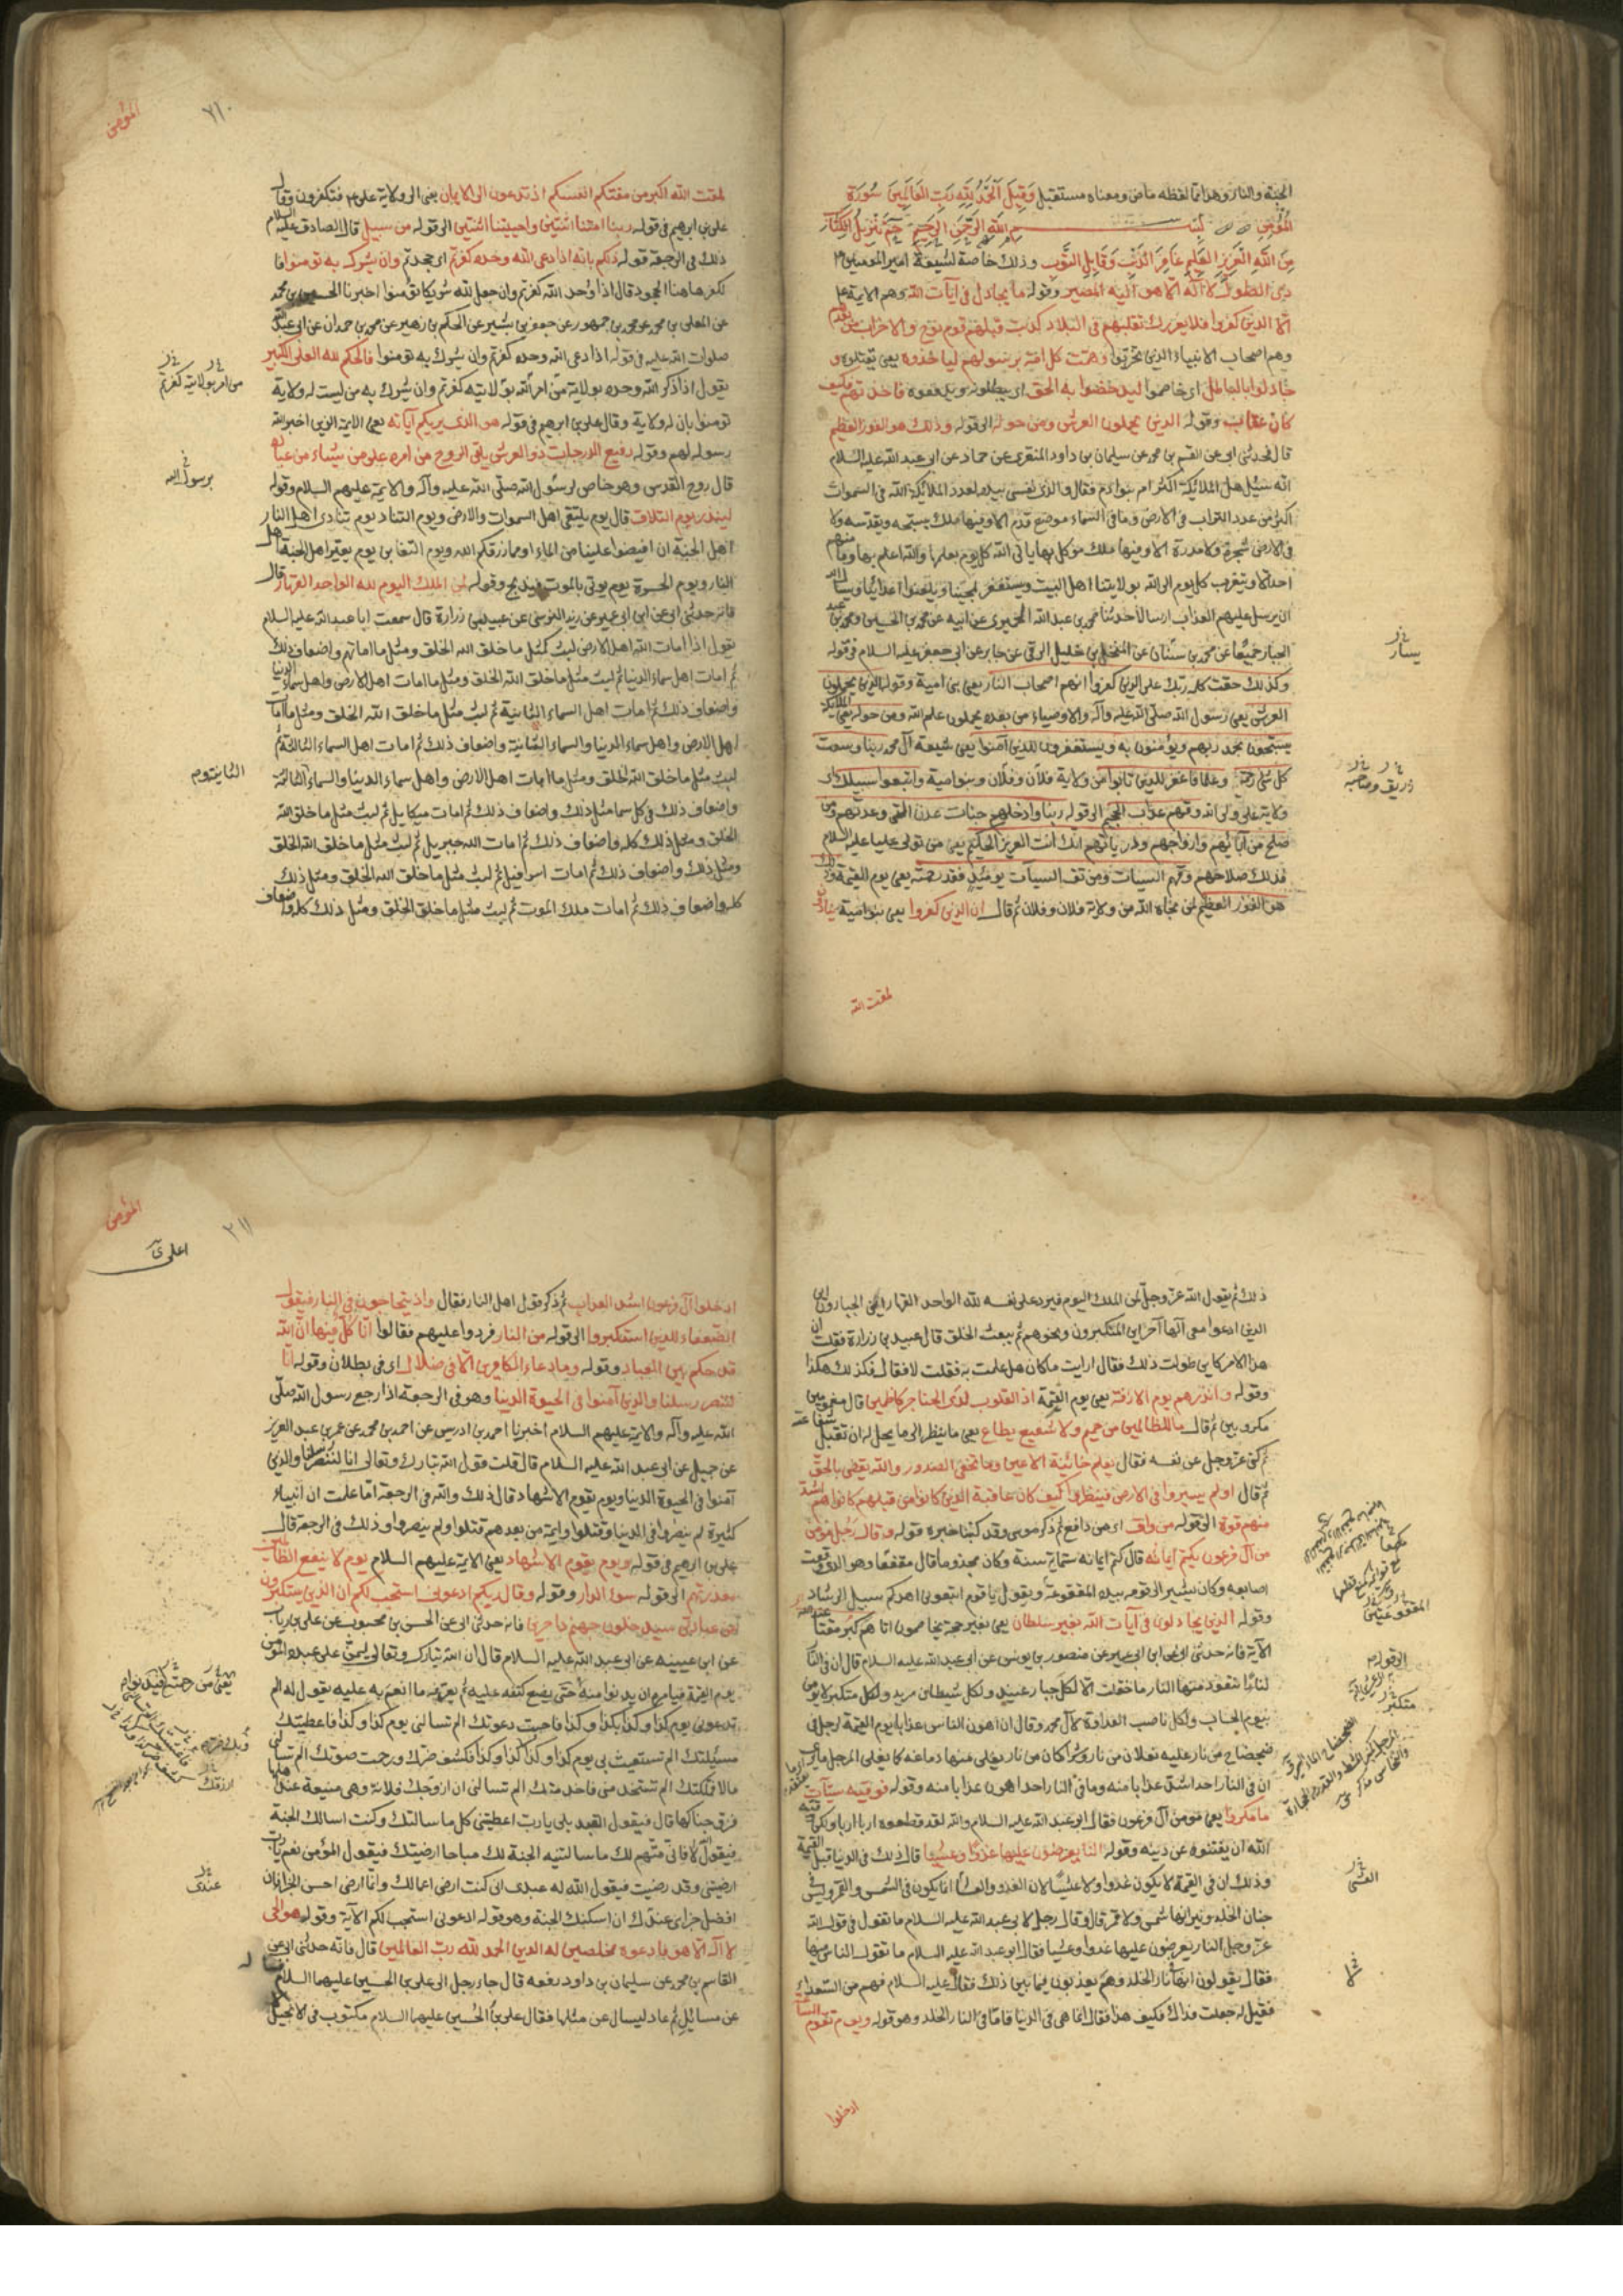 الجنة والنار وهذا مما لفظه ماض ومعناه مستقبل وَقِيلَ اَلْحَمْدُ لِلّهِ رَبِّ العَالَمِينَ سُورَة
المُؤْمِنِ بسم الله الرَّحمَنِ الرَّحِيمِ حم تَنْزِيلُ الْكِتَابِ
مِنَ اللهِ الْعَزِيزِ العَلِيمِ غَافِرِ الذَنْبِ وَقَابِلِ التَّوْبِ وذلك خاصة لشيعة امير المؤمنين ع
ذى الطول لا اله الا هو اليه المصير وقوله ما يجادل فى آيات الله وهم الائمة ع
الا الذين كفروا فلا يغررك تقلبهم فى البلاد كذبت قبلهم قوم نوح والاحزاب من بعدهم
وهم اصحاب الانبياء الذين تحزبوا وهمت كل امة برسولهم لياخذوه يعنى يقتلوه و
جادلوا بالباطل اى خاصموا ليدحضوا به الحق اى يبطلونه ويدفعوه فاخذتهم فكيف
كان عقاب وقوله الذين يحملون العرش ومن حوله الى قوله وذلك هو الفوز العظيم
قال فحدثنى ابى عن القسم بن محمد عن سليمان بن داود المنقرى عن حماد عن ابى عبد الله عليه السلام
انه سئل هل الملائكة اكثر ام بنو ادم فقال والذى نفسى بيده لعدد الملائكة الله فى السموات
اكثر من عدد التراب فى الارض وما فى السماء موضع قدم الا وفيها ملك يسبحه ويقدسه ولا
فى الارض شجرة ولا مدرة الا وفيها ملك موكل بها ياتى الله كل يوم بعلمها والله اعلم بها وما منهم
احد الا ويتقرب كل يوم الى الله بولايتنا اهل البيت ويستغفر لمحبينا ويلعن اعدائنا ويسأل الله
ان يرسل عليهم العذاب ارسالا حدثنا محمد بن عبد الله الحميرى عن ابيه عن محمد بن الحسين ومحمد بن عبد
الجبار جميعا عن محمد بن سنان عن المنخل بن خليل الرقى عن جابر عن ابى جعفر عليه السلام فى قوله
وكذلك حقت كلمة ربك على الذين كفروا انهم اصحاب النار يعنى بنى امية وقوله الذين يحملون
العرش يعنى رسول الله صلى الله عليه وآله والاوصياء من بعده يحملون علم الله ومن حوله يعنى الملائكة
يسبحون بحمد ربهم ويؤمنون به ويستغفرون للذين آمنوا يعنى شيعة آل محمد ربنا وسعت
كل شئ رحمة وعلما فاغفر للذين تابوا من ولاية فلان وفلان وبنو امية واتبعوا سبيلك اى
ولاية على ولى الله وقهم عذاب الجحيم الى قوله ربنا وادخلهم جنات عدن التى وعدتهم ومن
صلح من آبائهم وازواجهم وذرياتهم انك انت العزيز الحكيم يعنى من تولى عليا عليه السلام
فذلك صلاحهم وقهم السيئات ومن تق السيئات يومئذ فقد رحمته يعنى يوم القيمة وذلك
هو الفوز العظيم لمن نجاه الله من ولاية فلان وفلان ثم قال ان الذين كفروا يعنى بنو امية ينادون
لمقت الله
يسار
زريق وصاحبه
المؤمن
٢١٠
لمقت الله اكبر من مقتكم انفسكم اذ تدعون الى الايمان يعنى الى ولاية على ع فتكفرون وقال
على بن ابرهيم فى قوله ربنا امتنا اثنتين واحييتنا اثنتين الى قوله من سبيل قال الصادق عليه السلام
ذلك فى الرجعة قوله ذلكم بانه اذا دعى الله وحده كفرتم اى جحدتم وان يشرك به تومنوا فا
لكفر هاهنا الجحود قال اذا وحد الله كفرتم وان جعل لله شريكا تؤمنوا اخبرنا الحسين بن محمد
عن المعلى بن محمد عن محمد بن جمهور عن جعفر بن بشير عن الحكم بن زهير عن محمد بن حمدان عن ابى عبد الله
صلوات الله عليه فى قوله اذا دعى الله وحده كفرتم وان يشرك به تؤمنوا فالحكم لله العلى الكبير
يقول اذا ذكر الله وحده بولاية من امر الله بولايته كفرتم وان يشرك به من ليست له ولاية
تومنوا بان له ولاية وقال على بن ابرهيم فى قوله هو الذى يريكم آياته يعنى الايمة الذين اخبر الله
رسوله لهم وقوله رفيع الدرجات ذو العرش يلقى الروح من امره على من يشاء من عباده
قال روح القدس وهو خاص لرسول الله صلى الله عليه وآله والايمة عليهم السلام وقوله
لينذر يوم التلاق قال يوم يلتقى اهل السموات والارض ويوم التناد يوم تنادى اهل النار
اهل الجنة ان افيضوا علينا من الماء او مما رزقكم الله ويوم التغابن يوم يعير اهل الجنة اهل
النار ويوم الحسرة يوم يوتى بالموت فيذبح وقوله لمن الملك اليوم لله الواحد القهار قال
فانه حدثنى ابى عن ابن ابى عمير عن زيد النرسى عن عبيد بن زرارة قال سمعت ابا عبد الله عليه السلام
يقول اذا امات الله اهل الارض لبث كمثل ما خلق الله الخلق ومثل ما اماتهم واضعاف ذلك
ثم امات اهل سماء الدنيا ثم لبث مثل ما خلق الله الخلق ومثل ما امات اهل الارض واهل سماء الدنيا
واضعاف ذلك ثم امات اهل السماء الثانية ثم لبث مثل ما خلق الله الخلق ومثل ما امات
اهل الارض واهل سماء الدنيا والسماء الثانية واضعاف ذلك ثم امات اهل السماء الثالثة ثم
لبث مثل ما خلق الله الخلق ومثل ما امات اهل الارض واهل سماء الدنيا والسماء الثالثة
واضعاف ذلك فى كل سما مثل ذلك واضعاف ذلك ثم امات ميكايل ثم لبث مثل ما خلق الله
الخلق ومثل ذلك كله واضعاف ذلك ثم امات الله جبريل ثم لبث مثل ما خلق الله الخلق
ومثل ذلك واضعاف ذلك ثم امات اسرافيل ثم لبث مثل ما خلق الله الخلق ومثل ذلك
كله واضعاف ذلك ثم امات ملك الموت ثم لبث مثل ما خلق الخلق ومثل ذلك كله واضعاف
من امر بولايته كفرتم
برسول الله
الثانية
ذلك ثم يقول الله عز وجل لمن الملك اليوم فيرد على نفسه لله الواحد القهار اين الجبارون اين
الذين ادعوا معى آلها آخر اين المتكبرون ونحوهم ثم يبعث الخلق قال عبيد بن زرارة فقلت ان
هذا الامر كاين طولت ذلك فقال ارايت ما كان هل علمت به فقلت لا فقال فكذلك هكذا
وقوله وانذرهم يوم الازفة يعنى يوم القيمة اذ القلوب لدى الحناجر كاظمين قال مغمومين
مكروبين ثم قال ما للظالمين من حميم ولا شفيع يطاع يعنى ما ينظر الى ما يحل له ان تقبل شفاعته
ثم كنى عز وجل عن نفسه فقال يعلم خائنة الاعين وما تخفى الصدور والله يقضى بالحق
ثم قال اولم يسيروا فى الارض فينظروا كيف كان عاقبة الذين كانوا من قبلهم كانوا هم اشد
منهم قوة الى قوله من واق اى من دافع ثم ذكر موسى وقد كتبنا خبره قوله وقال رجل مؤمن
من آل فرعون يكتم ايمانه قال كتم ايمانه ستمائة سنة وكان مجذوما قال مقفعا وهو الذى وقعت
اصابعه وكان يشير الى قومه بيده المقفوعة ويقول يا قوم اتبعونى اهدكم سبيل الرشاد
وقوله الذين يجادلون فى آيات الله بغير سلطان يعنى بغير حجة يخاصمون اتاهم كبر مقتا عند الله
الآية فانه حدثنى ابى عن ابن ابى عمير عن منصور بن يونس عن ابى عبد الله عليه السلام قال ان فى النار
لنارا تتعوذ منها النار ما خلقت الا لكل جبار عنيد ولكل شيطان مريد ولكل متكبر لا يومن
بيوم الحساب ولكل ناصب العداوة لآل محمد وقال ان اهون الناس عذابا يوم القيمة لرجل فى
ضحضاح من نار عليه نعلان من نار وشراكان من نار يغلى منها دماغه كما يغلى المرجل ما يرى
ان فى النار احدا اشد عذابا منه وما فى النار احدا اهون عذابا منه وقوله فوقيه الله سيئات
ما مكروا يعنى مومن آل فرعون فقال ابو عبد الله عليه السلام والله لقد قطعوه اربا اربا ولكن وقيه
الله ان يفتنوه عن دينه وقوله النار يعرضون عليها غدوا وعشيا قال ذلك فى الدنيا قبل القيمة
وذلك ان فى القيمة لا يكون غدوا ولا عشيا لان الغدو والعشا انما يكون فى الشمس والقمر وليس فى
جنان الخلد ونيرانها شمس ولا قمر قال وقال رجل لابى عبد الله عليه السلام ما تقول فى قول الله
عز وجل النار يعرضون عليها غدوا وعشيا فقال ابو عبد الله عليه السلام ما تقول الناس فيها
فقال يقولون انها نار الخلد وهم يعذبون فيما بين ذلك فقال عليه السلام فهم من السعداء
فقيل له جعلت فداك فكيف هذا فقال انما هى فى الدنيا فاما فى النار الخلد وهو قوله ويوم تقوم الساعة
ادخلوا
متكبر
العشى
المؤمن
٢١١
ادخلوا آل فرعون اشد العذاب ثم ذكر قول اهل النار فقال واذ يتحاجون فى النار فيقول
الضعفاء للذين استكبروا الى قوله من النار فردوا عليهم فقالوا انا كل فيها ان الله
قد حكم بين العباد وقوله وما دعاء الكافرين الا فى ضلال اى فى بطلان وقوله انا
لننصر رسلنا والذين آمنوا فى الحيوة الدنيا وهو فى الرجعة اذا رجع رسول الله صلى
الله عليه وآله والايمة عليهم السلام اخبرنا احمد بن ادريس عن احمد بن محمد عن عمر بن عبد العزيز
عن جميل عن ابى عبد الله عليه السلام قال قلت قول الله تبارك وتعالى انا لننصر رسلنا والذين
آمنوا فى الحيوة الدنيا ويوم يقوم الاشهاد قال ذلك والله فى الرجعة اما علمت ان انبياء
كثيرة لم ينصروا فى الدنيا وقتلوا وايمة من بعدهم قتلوا ولم ينصروا وذلك فى الرجعة قال
على بن ابرهيم فى قوله ويوم يقوم الاشهاد يعنى الايمة عليهم السلام يوم لا ينفع الظالمين
معذرتهم الى قوله سوء الدار وقوله وقال ربكم ادعونى استجب لكم ان الذين يستكبرون
عن عبادتى سيدخلون جهنم داخرين فانه حدثنى ابى عن الحسن بن محبوب عن على بن رياب
عن ابى عيينه عن ابى عبد الله عليه السلام قال ان الله تبارك وتعالى ليمن على عبده المؤمن
يوم القيمة فيامره ان يدنو منه حتى يضع كنفه عليه ثم يعرفه ما انعم به عليه يقول له الم
تدعونى يوم كذا وكذا بكذا وكذا فاجبت دعوتك الم تسالنى يوم كذا وكذا فاعطيتك
مسئلتك الم تستغيث بى يوم كذا وكذا فكشف ضرك ورحمت صوتك الم تسالنى
مالا فملكتك الم تستخدمنى فاخدمتك الم تسالنى ان ازوجك فلانة وهى منيعة عند اهلها
فزوجناكها قال فيقول العبد بلى يا رب اعطيتنى كل ما سالتك وكنت اسالك الجنة
فيقول الله فانى منعم لك ما سالتنيه الجنة لك مباحا ارضيتك فيقول المؤمن نعم يا رب
ارضيتنى وقد رضيت فيقول الله له عبدى انى كنت ارضى اعمالك وانما ارضى احسن الجزا فان
افضل جزاى عندك ان اسكنك الجنة وهو قوله ادعونى استجب لكم الآية وقوله هو الحى
لا اله الا هو فادعوه مخلصين له الدين الحمد لله رب العالمين قال فانه حدثنى ابى عن
القاسم بن محمد عن سليمان بن داود رفعه قال جاء رجل الى على بن الحسين عليهما السلام فساله
عن مسائل ثم عاد ليسال عن مثلها فقال على بن الحسين عليهما السلام مكتوب فى الانجيل
ازوجك
عندى